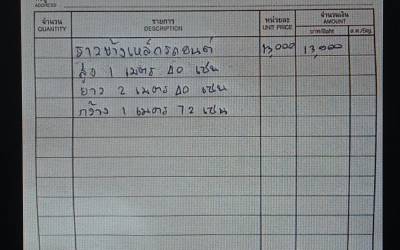 ADDRESS
จำนวน รายการ หน่วยละ จำนวนเงิน
QUANTITY DESCRIPTION UNIT PRICE AMOUNT
บาท/Baht ส.ต./Stg.
ราวข้างเหล็กรถยนต์ 13,000 13,000
สูง 1 เมตร 40 เซน
ยาว 2 เมตร 40 เซน
กว้าง 1 เมตร 72 เซน